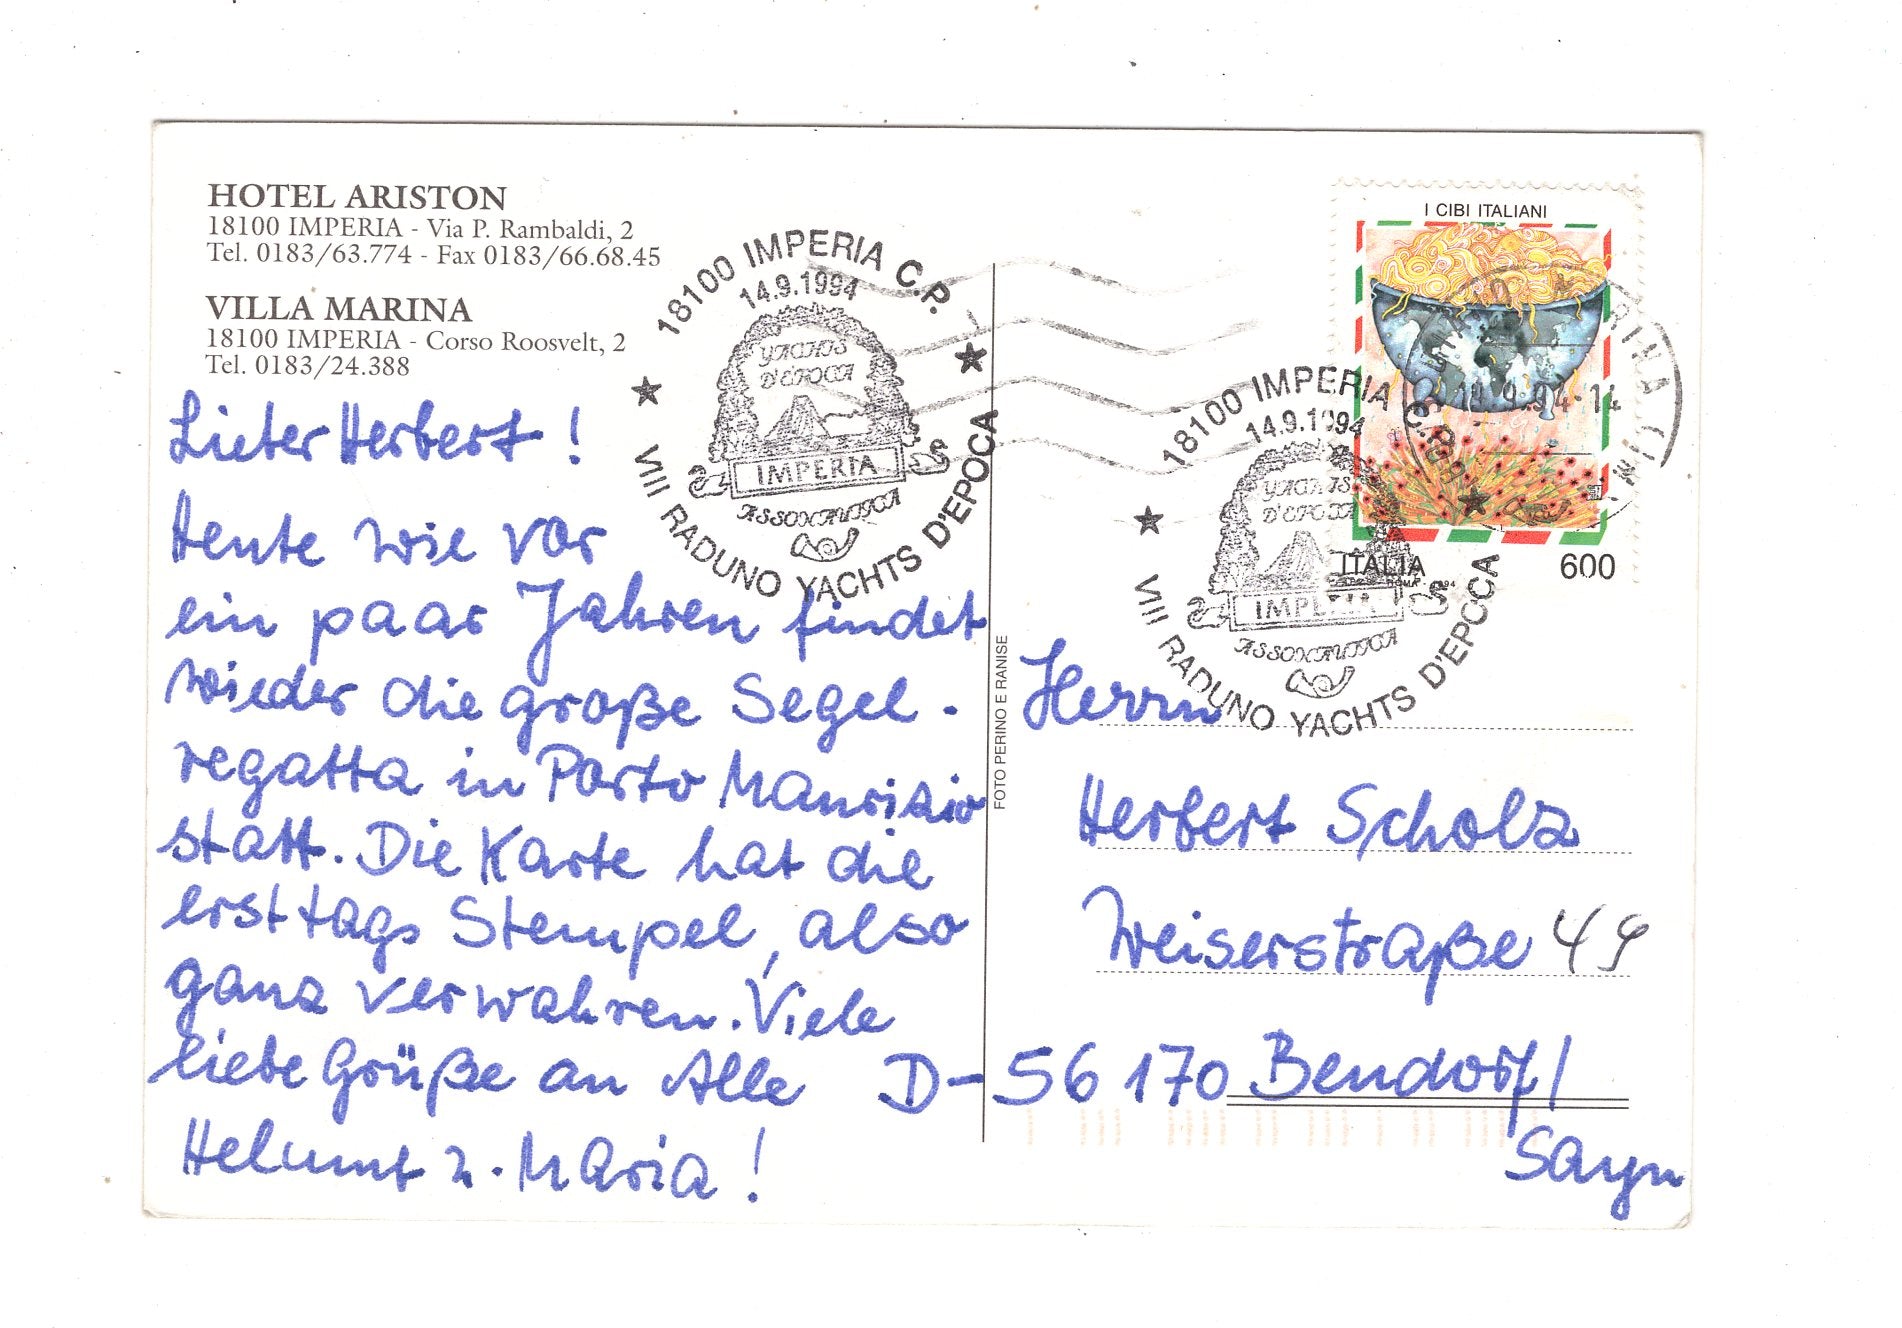 HOTEL ARISTON
18100 IMPERIA - Via P. Rambaldi, 2
Tel. 0183/63.774 - Fax 0183/66.68.45
VILLA MARINA
18100 IMPERIA - Corso Roosvelt, 2
Tel. 0183/24.388
Lieber Herbert!
Heute wie vor
ein paar Jahren findet
wieder die große Segel-
regatta in Porto Maurizio
statt. Die Karte hat die
ersttags Stempel, also
ganz verwahren. Viele
liebe Grüße an Alle
Helmut u. Maria!
18100 IMPERIA C.P.
14.9.1994
YACHTS
D'EPOCA
IMPERIA
ASSONAUTICA
VIII RADUNO YACHTS D'EPOCA
FOTO PERINO E RANISE
18100 IMPERIA C.P.
14.9.1994
YACHTS
D'EPOCA
IMPERIA
ASSONAUTICA
VIII RADUNO YACHTS D'EPOCA
I CIBI ITALIANI
14.9.94-14
ITALIA
600
Herrn
Herbert Scholz
Weiserstraße 49
D-56170 Bendorf/
Sayn